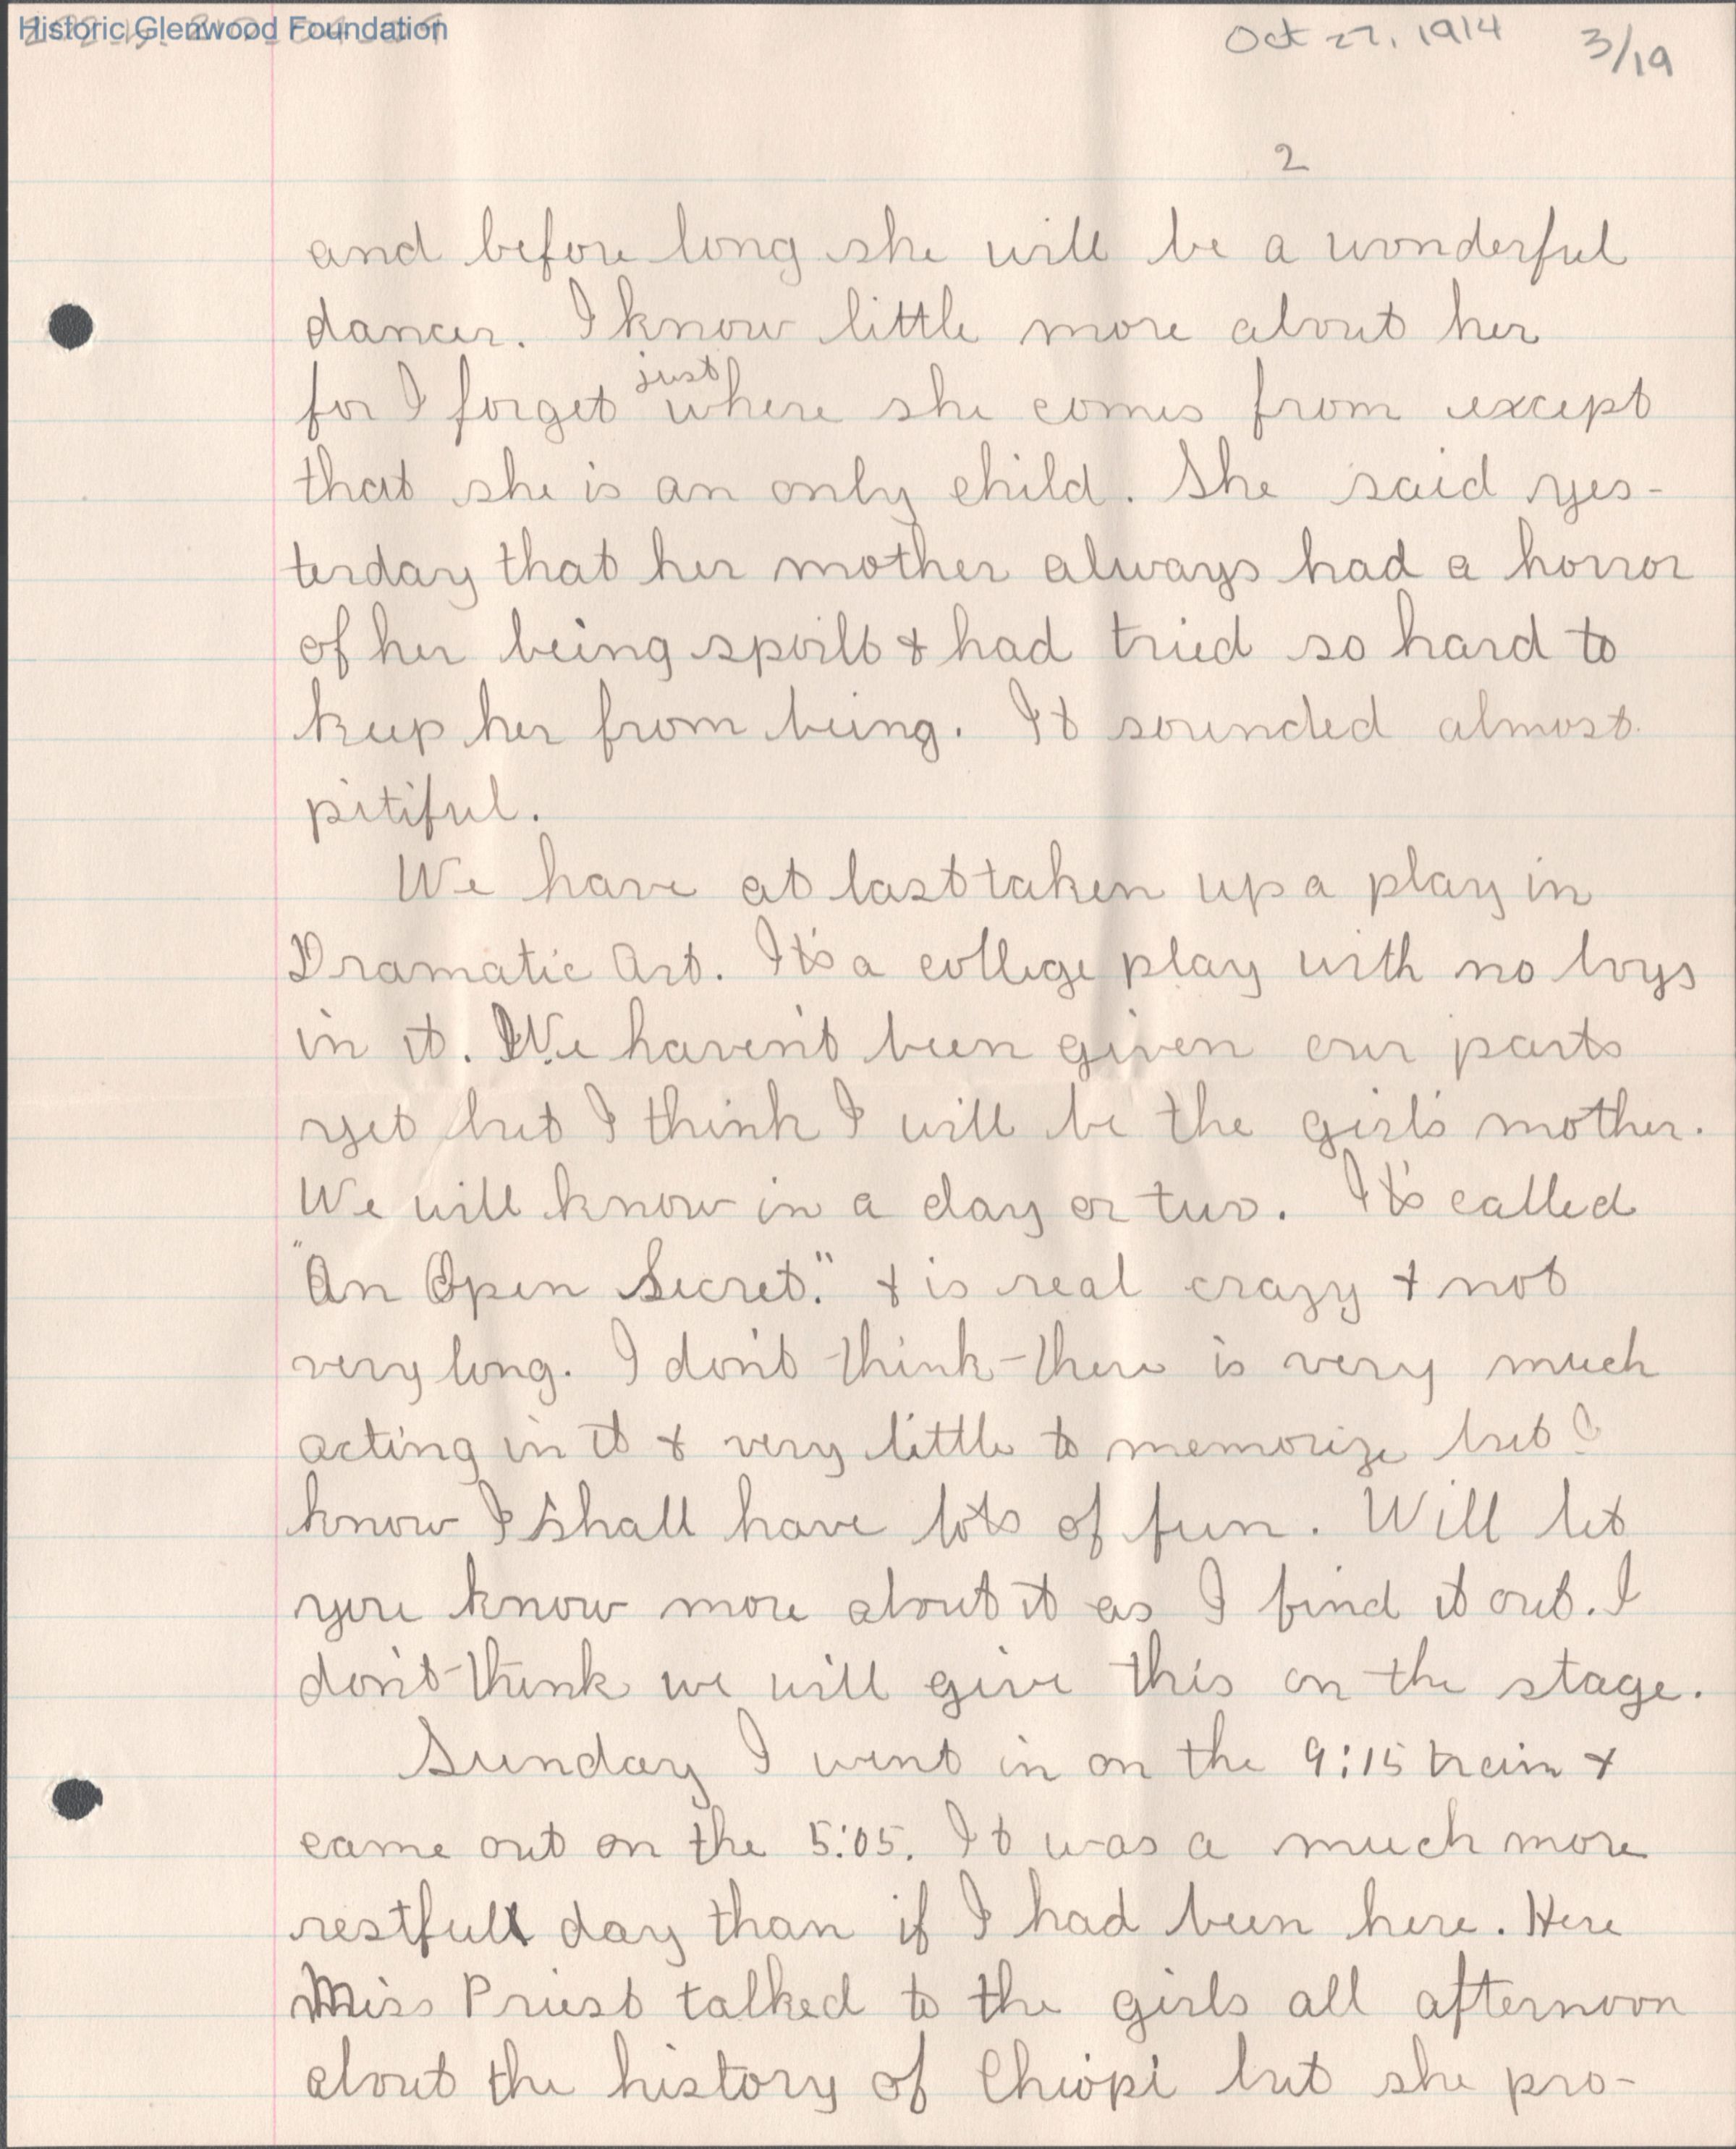 Historic Glenwood Foundation
Oct 27, 1914 3/19
2
and before long she will be a wonderful
dancer. I know little more about her
just
for I forget where she comes from except
that she is an only child. She said yes-
terday that her mother always had a horror
of her being spoilt & had tried so hard to
keep her from being. It sounded almost
pitiful.
We have at last taken up a play in
Dramatic Art. It's a college play with no boys
in it. We haven't been given our parts
yet but I think I will be the girl's mother.
We will know in a day or two. It's called
"An Open Secret." & is real crazy & not
very long. I don't think there is very much
acting in it & very little to memorize but I
know I shall have lots of fun. Will let
you know more about it as I find it out. I
don't think we will give this on the stage.
Sunday I went in on the 9:15 train &
came out on the 5:05. It was a much more
restful day than if I had been here. Here
Miss Priest talked to the girls all afternoon
about the history of Chiopi but she pro-